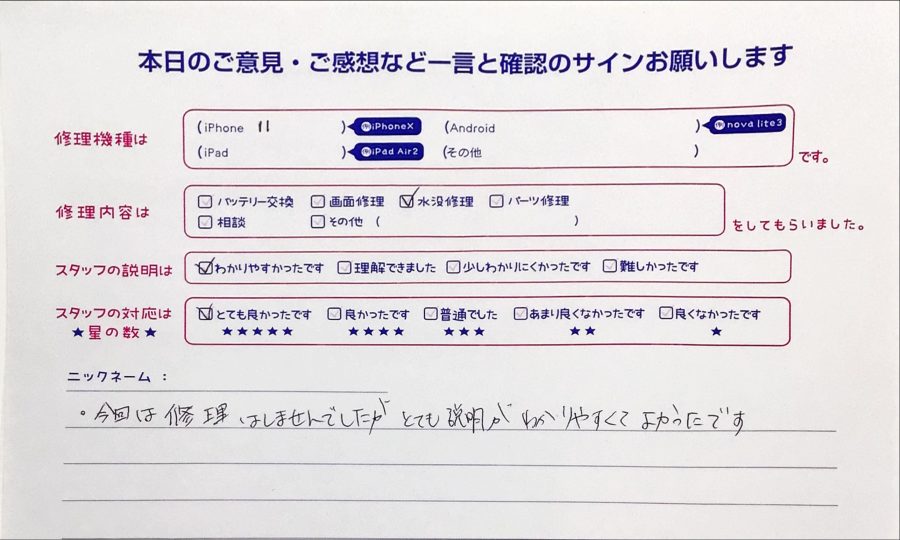 本日のご意見・ご感想など一言と確認のサインお願いします
修理機種は (iPhone 11 ) 例iPhoneX (Android ) 例nova lite3
(iPad ) 例iPad Air2 (その他 ) です。
修理内容は □バッテリー交換 □画面修理 ☑水没修理 □パーツ修理
□相談 □その他 ( ) をしてもらいました。
スタッフの説明は ☑わかりやすかったです □理解できました □少しわかりにくかったです □難しかったです
スタッフの対応は ☑とても良かったです □良かったです □普通でした □あまり良くなかったです □良くなかったです
★星の数★ ★★★★★ ★★★★ ★★★ ★★ ★
ニックネーム：
・今回は修理はしませんでしたが とても説明が わかりやすくて よかったです